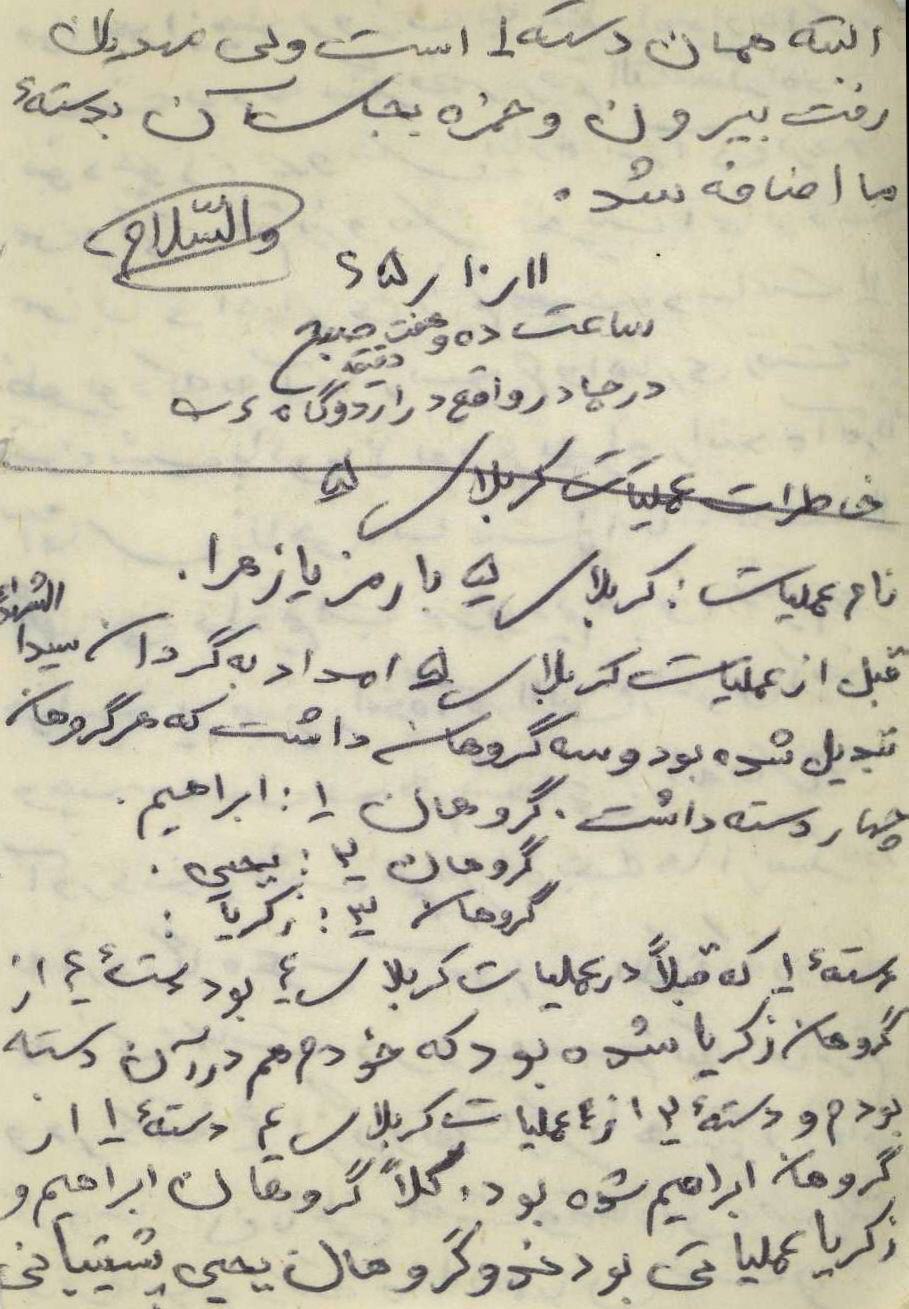 البته همان دسته ۱ است ولی مهدیان
رفت بیرون و حمزه بجاش آن بدستهٔ
ما اضافه شد.
والسّلام
۱۱ر۱۰ر۶۵
ساعت ده و هفت دقیقه صبح
در چادر واقع در اردوگاه
خاطرات عملیات کربلای ۵
نام عملیات: کربلای ۵ با رمز یا زهرا.
قبل از عملیات کربلای ۵ امداد به گردان سیدالشهداء
تبدیل شده بود و سه گروهان داشت که هر گروهان
چهار دسته داشت. گروهان ۱: ابراهیم.
گروهان ۲: یحیی.
گروهان ۳: زکریا:
دستهٔ ۱ که قبلاً در عملیات کربلای ۴ بود دستهٔ ۴ از
گروهان زکریا شده بود که خودم هم در آن دسته
بودم و دستهٔ ۲ از عملیات کربلای ۴ دستهٔ ۱ از
گروهان ابراهیم شده بود. کلاً گروهان ابراهیم و
زکریا عملیاتی بودند و گروهان یحیی پشتیبانی